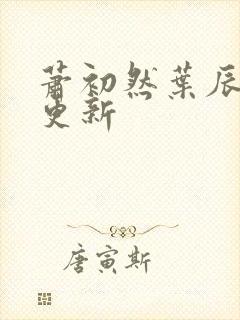 萧初然葉辰
更新
唐寅斯